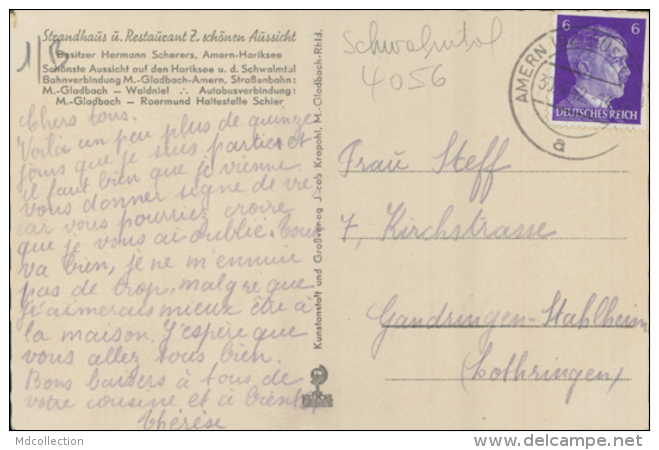 Strandhaus u. Restaurant Z. schönen Aussicht
Besitzer Hermann Scherers, Amern-Hariksee
Schönste Aussicht auf den Hariksee u. d. Schwalmtal
Bahnverbindung M.-Gladbach-Amern, Straßenbahn:
M.-Gladbach - Waldniel ∴ Autobusverbindung:
M.-Gladbach - Roermund Haltestelle Schier
Chers tous.
Voilà un peu plus de quinze
jours que je suis partie et
il faut bien que je vienne
vous donner signe de vie
car vous pourriez croire
que je vous ai oublié. Tout
va bien, je ne m'ennuie
pas de trop, malgré que
j'aimerais mieux être à
la maison. J'espère que
vous allez tous bien.
Bons baisers à tous de
votre cousine et à bientôt
Thérèse
Kunstanstalt und Großverlag Jacob Krapohl, M.-Gladbach-Rhld.
Schwalmtal
4056
6 6
DEUTSCHES REICH
AMERN
a
Frau Steff
7, Kirchstrasse
Gandringen-Stahlheim
(Lothringen)
Mdcollection
www.delcampe.net